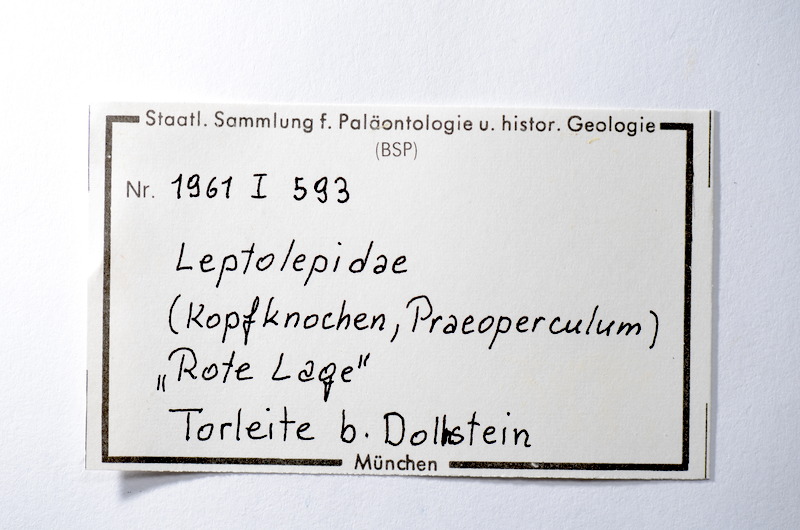 Staatl. Sammlung f. Paläontologie u. histor. Geologie
(BSP)
Nr. 1961 I 593
Leptolepidae
(Kopfknochen, Praeoperculum)
„Rote Lage"
Torleite b. Dollnstein
München